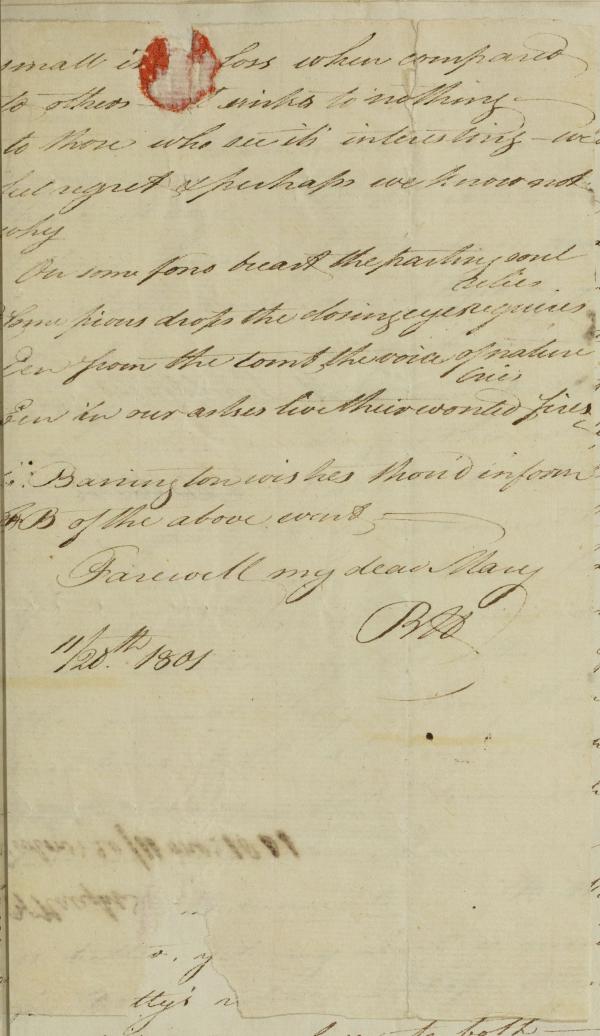 small is loss when compared
to others sinks to nothing
to those who see it interesting - we'd
feel regret & perhaps we know not
why
On some fond breast the parting soul
relies
Some pious drops the closing eye requires
Een from the tomb the voice of nature
cries
Een in our ashes live their wonted fires
Barrington wishes thou'd inform
B of the above event
Farewell my dear Mary
11/20th 1801
tty's
both